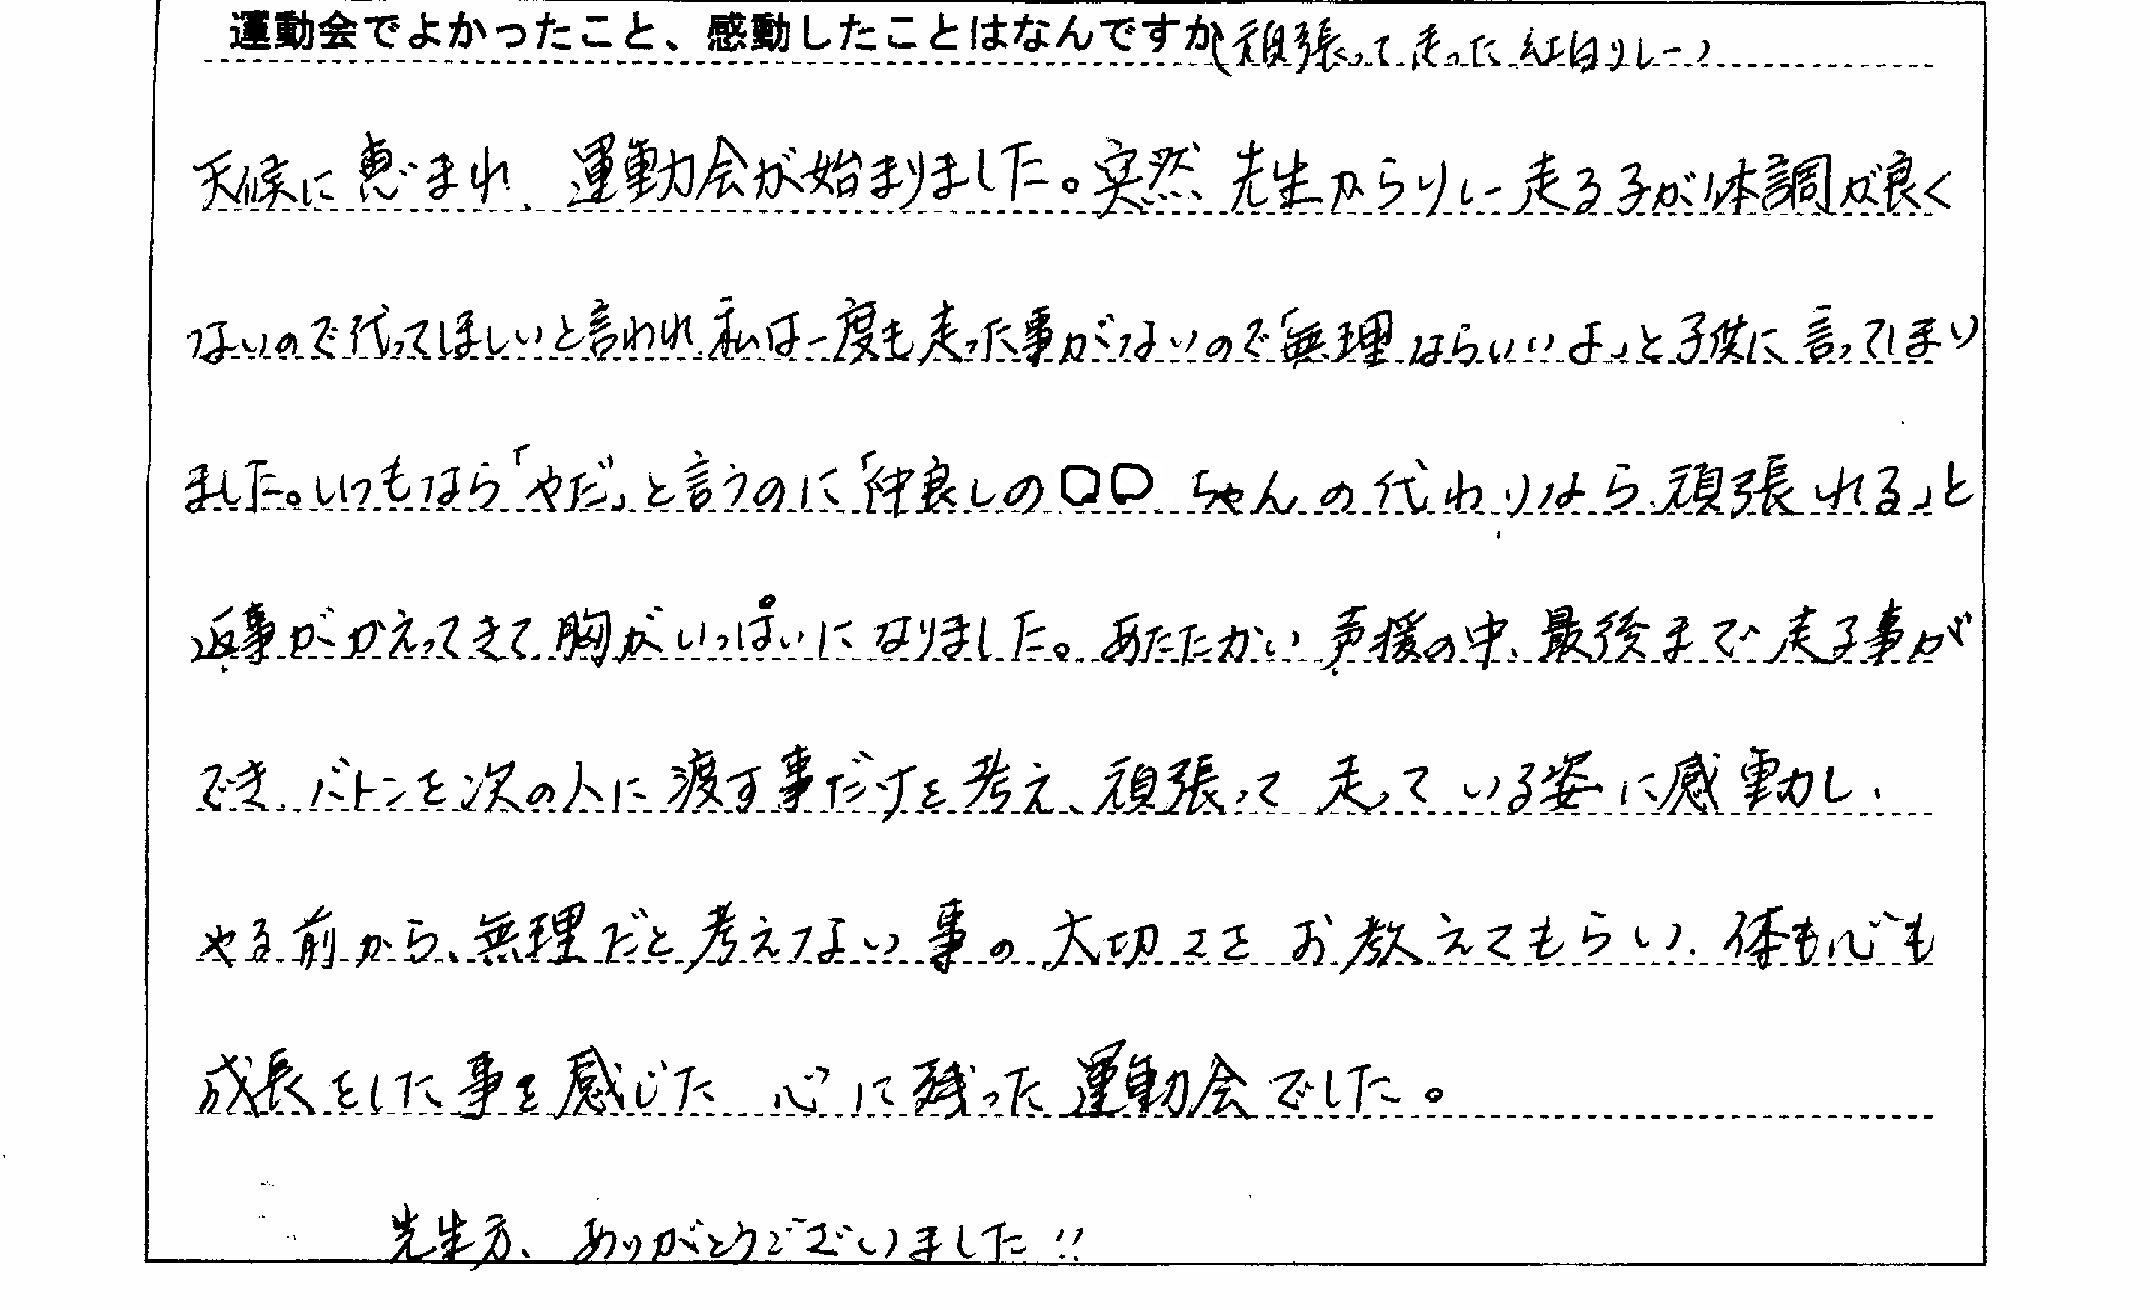 運動会でよかったこと、感動したことはなんですか(頑張って走った紅白リレー)
天候に恵まれ、運動会が始まりました。突然、先生からリレー走る子が体調が良く
ないので代ってほしいと言われ、私は一度も走った事がないので「無理ならいいよ」と子供に言ってしまり
ました。いつもなら「やだ」と言うのに「仲良しの□□ちゃんの代わりなら、頑張れる」と
返事がかえってきて胸がいっぱいになりました。あたたかい声援の中、最後まで走る事が
でき、バトンを次の人に渡す事だけを考え、頑張って走っている姿に感動し、
やる前から、無理だと考えない事の大切さをお教えてもらい、体も心も
成長をした事を感じた 心に残った運動会でした。
先生方、ありがとうございました!!